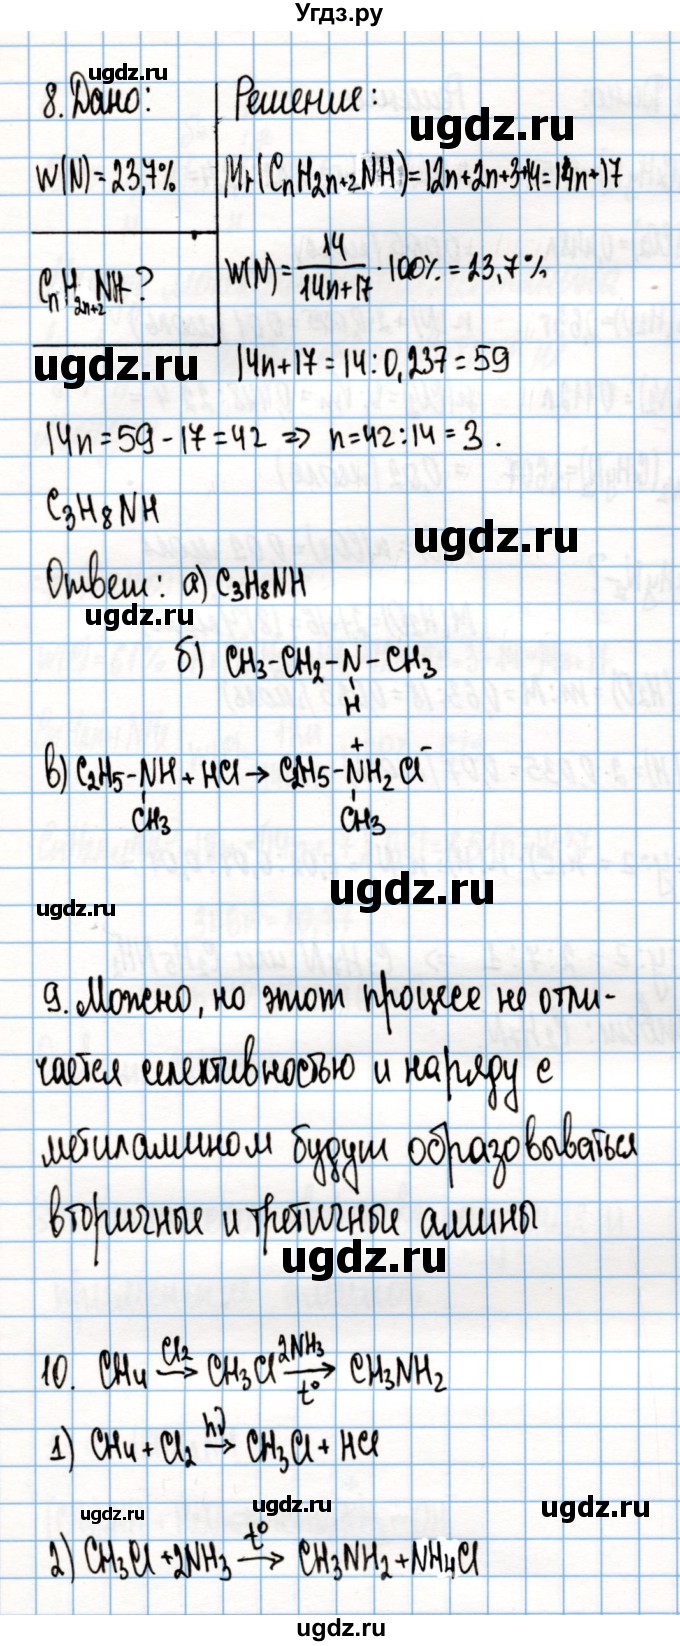 Угдз.ру
ugdz.ru
8. Дано: Решение:
ugdz.ru
W(N) = 23,7% Mr(CnH2n+2NH) = 12n+2n+3+14 = 14n+17
CnH2n+2NH-? W(N) = 14/(14n+17) · 100% = 23,7%
ugdz.ru
14n+17 = 14:0,237 = 59
14n = 59 - 17 = 42 => n = 42:14 = 3.
C3H8NH
ugdz.ru
Ответ: а) C3H8NH
ugdz.ru
б) CH3-CH2-N-CH3
H
+
в) C2H5-NH + HCl → C2H5-NH2 Cl-
CH3 CH3
ugdz.ru
ugdz.ru
9. Можно, но этот процесс не отли-
чается селективностью и наряду с
метиламином будут образовываться
вторичные и третичные амины
ugdz.ru
10. CH4 Cl2→ CH3Cl 2NH3→ t° CH3NH2
1) CH4 + Cl2 hν→ CH3Cl + HCl
ugdz.ru ugdz.ru ugdz.ru
2) CH3Cl + 2NH3 t°→ CH3NH2 + NH4Cl
ugdz.ru